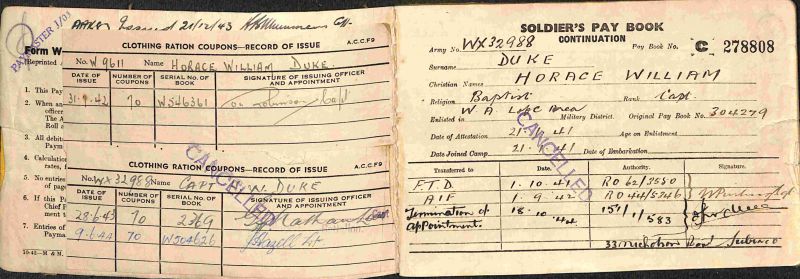 Issued 21/12/43
PAYMASTER
Form W
(Reprinted
1. This Pay
2. When an
officer
The A
Roll a
3. All debit
Payme
4. Calculatio
rates,
5. No entries
of page
6. If this P
Chief F
ment t
7. Entries of
Payma
10-42—M & M.
CLOTHING RATION COUPONS—RECORD OF ISSUE A.C.C.F9
No. W9611 Name HORACE WILLIAM DUKE.
DATE OF ISSUE NUMBER OF COUPONS SERIAL No. OF BOOK SIGNATURE OF ISSUING OFFICER AND APPOINTMENT
31.9.42 70 W546361 Capt
CANCELLED
CLOTHING RATION COUPONS—RECORD OF ISSUE A.C.C.F9
No. WX32988 Name CAPT H.W. DUKE
DATE OF ISSUE NUMBER OF COUPONS SERIAL No. OF BOOK SIGNATURE OF ISSUING OFFICER AND APPOINTMENT
28.6.43 70
9.6.44 70 W504626
SOLDIER'S PAY BOOK
CONTINUATION
Army No. WX32988 Pay Book No. C 278808
Surname DUKE
Christian Names HORACE WILLIAM
Religion Baptist Rank Capt.
Enlisted in W.A. L of C Area Military District. Original Pay Book No. 304279
Date of Attestation 21. .41 Age on Enlistment
Date Joined Camp 21. .41 Date of Embarkation
CANCELLED
Transferred to Date. Authority. Signature.
F.T.D 1.10.41 RO 62/3550
AIF 1.9.42 RO 44/5346
Termination of appointment. 18.10.44 151/1/583
33 Nicholson Road Subiaco